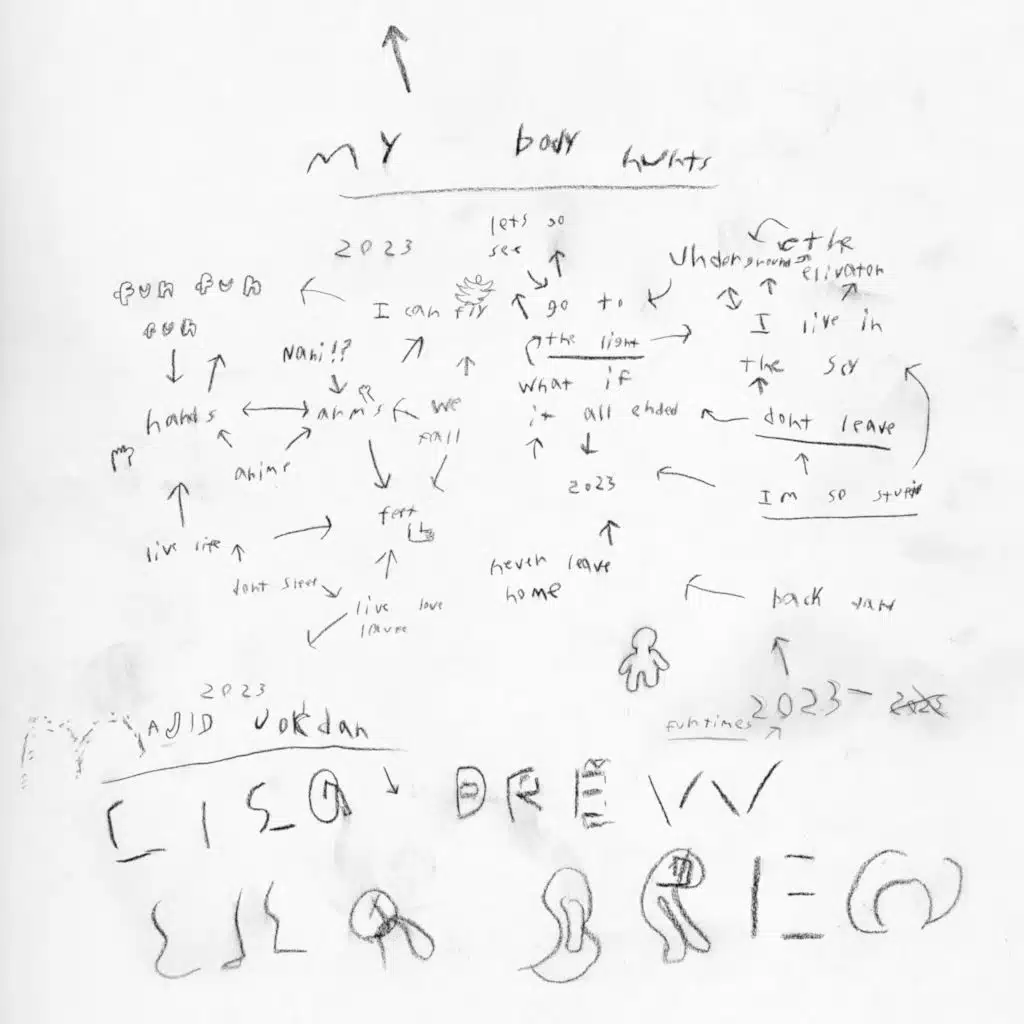 MY body huhts
lets go
see
2023
the
elivator
Underground
fun fun
fun
I can fly
go to
I live in
the light
the scy
Nani!?
what if
it all ended
hands
arms
we
fall
dont leave
anime
2023
Im so stupid
feet
live life
never leave
home
dont sleep
live love
back yard
2023
2023-
funtimes
LISA BREW